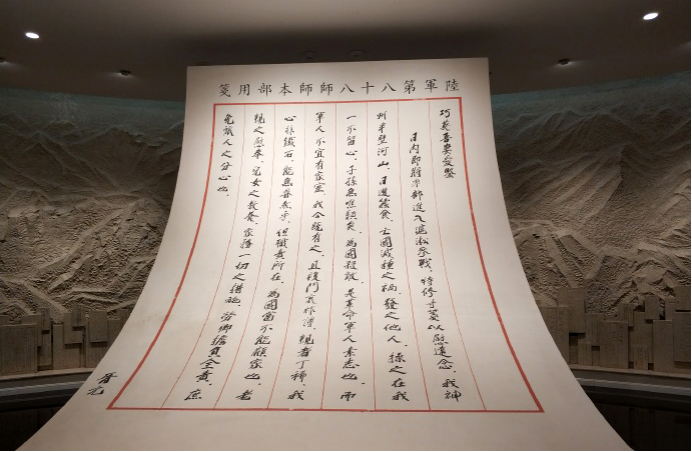 陸軍第八十八師師本部用箋
巧英吾妻愛鑒
日內即將率部進入滬淞參戰、特修寸箋以慰遠念、我神
州半壁河山、日遭蠶食、亡國滅種之禍、發之他人、操之在我
一不留心、子孫無噍類矣、為國殺敵、是革命軍人素志也、而
軍人不宜有家室、我今既有之、且復門衰祚薄、親者丁稀、我
心非鐵石、能無眷然乎、但職責所在、為國當不能顧家也、老
親之慰奉、兒女之教養、家務一切之措施、勞卿擔負全責、庶
免旅人之分心也、
晋元